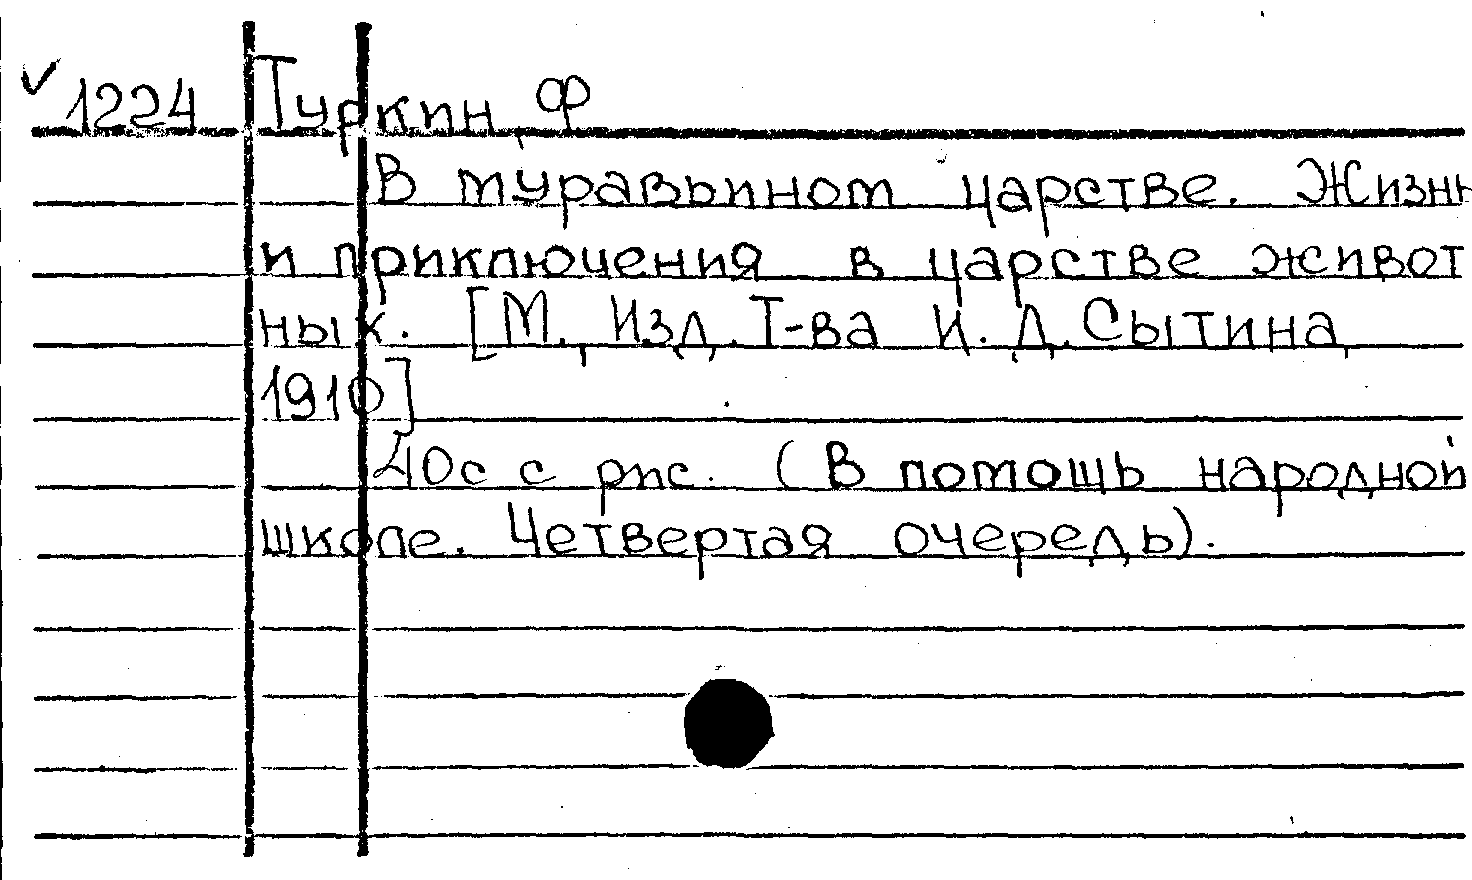 ✓ 1224 Туркин, Ф
В муравьином царстве. Жизнь
и приключения в царстве живот
ных. [М., Изд. Т-ва И. Д. Сытина,
1910]
40с с рис. (В помощь народной
школе. Четвертая очередь).